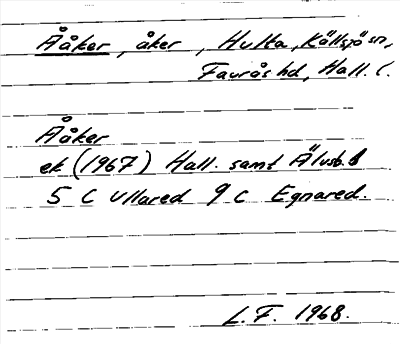 Ååker, åker, Hulta, Källsjö sn,
Faurås hd, Hall. l.
Ååker
ek (1967) Hall. samt Älvsb. l
5 C Ullared 9 C Egnared.
L.F. 1968.